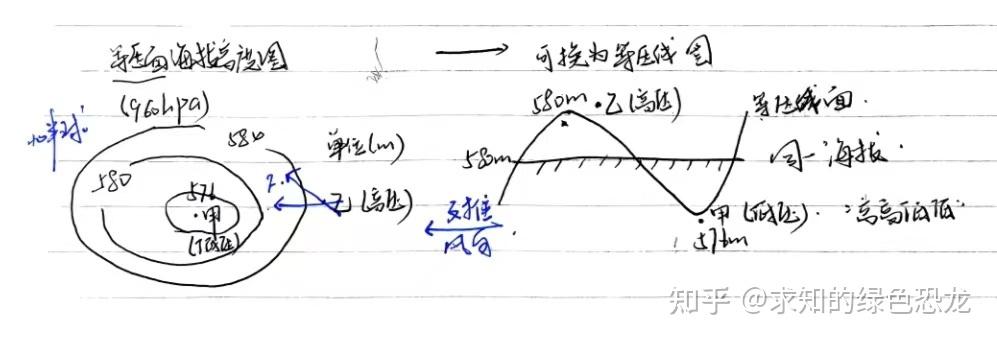 等压面海拔高度图 → 可换为等压线图
(960hpa)
北半球
584
580
576
·甲
(低压)
单位(m)
2.
乙(高压)
580m·乙(高压)
等压线面
58m
同一海拔
·甲(低压)
576m
∴高高低低
反推
风向
知乎 @求知的绿色恐龙